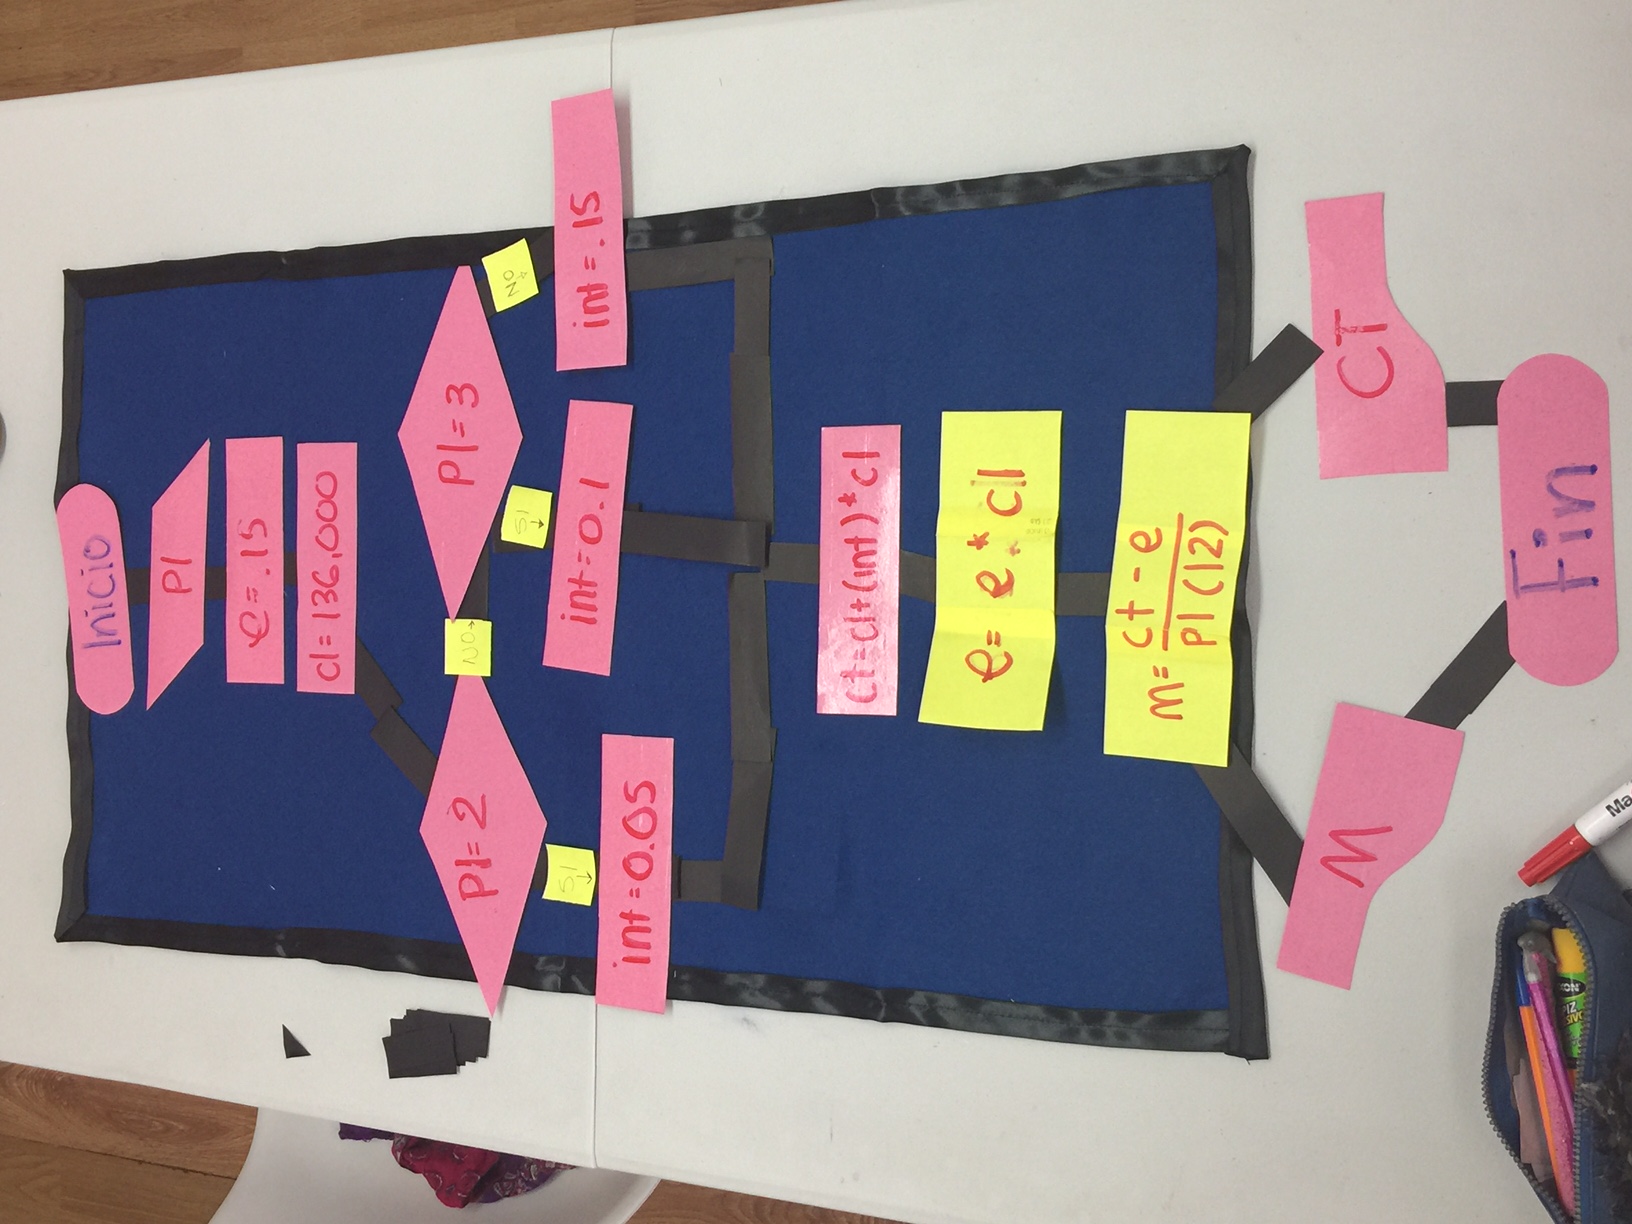 Inicio
Pl
e=.15
cl=136,000
Pl=2
NO
Pl=3
SI
SI
NO
int=0.05
int=0.1
int=.15
ct=cl+(int)*cl
e= e*cl
m= ct-e
pl(12)
M
CT
Fin
Ma